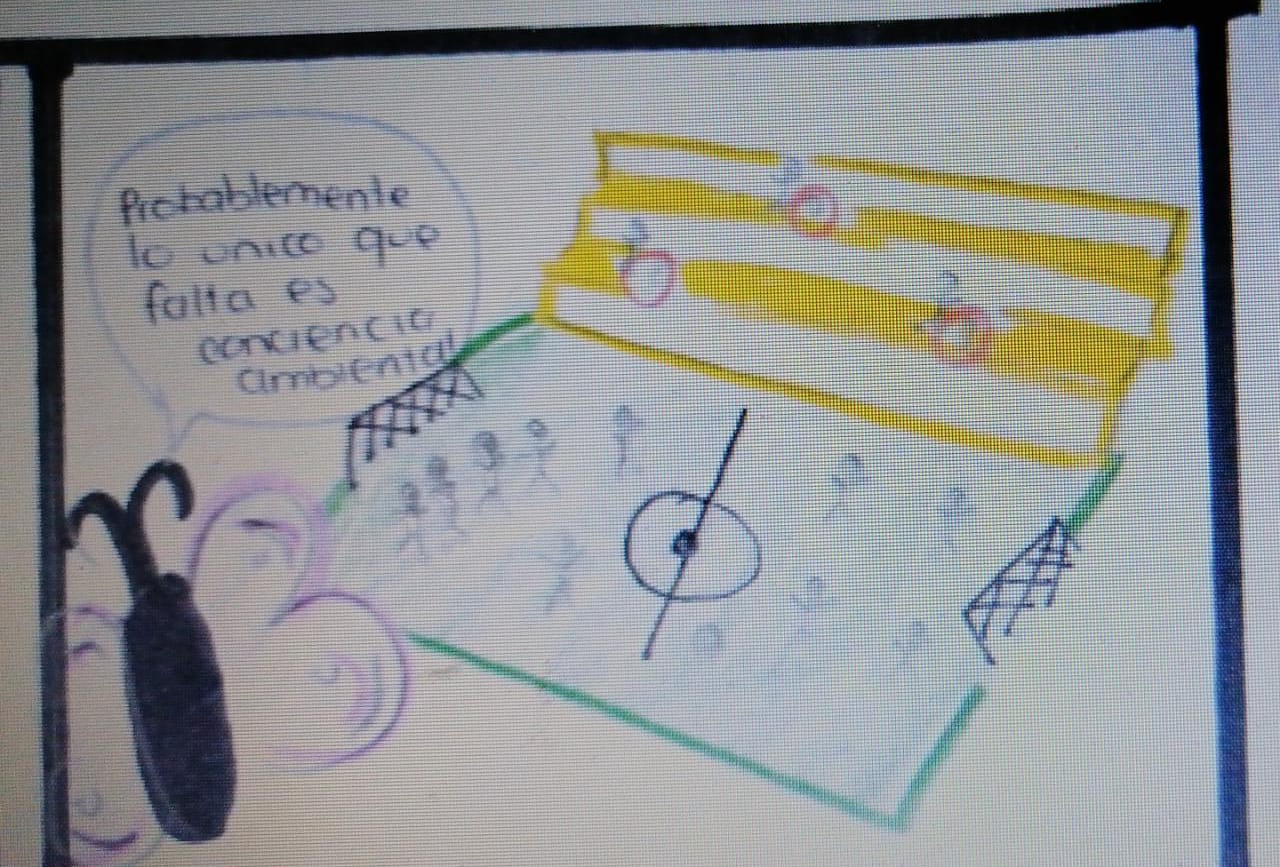 Probablemente
lo unico que
falta es
conciencia
ambiental